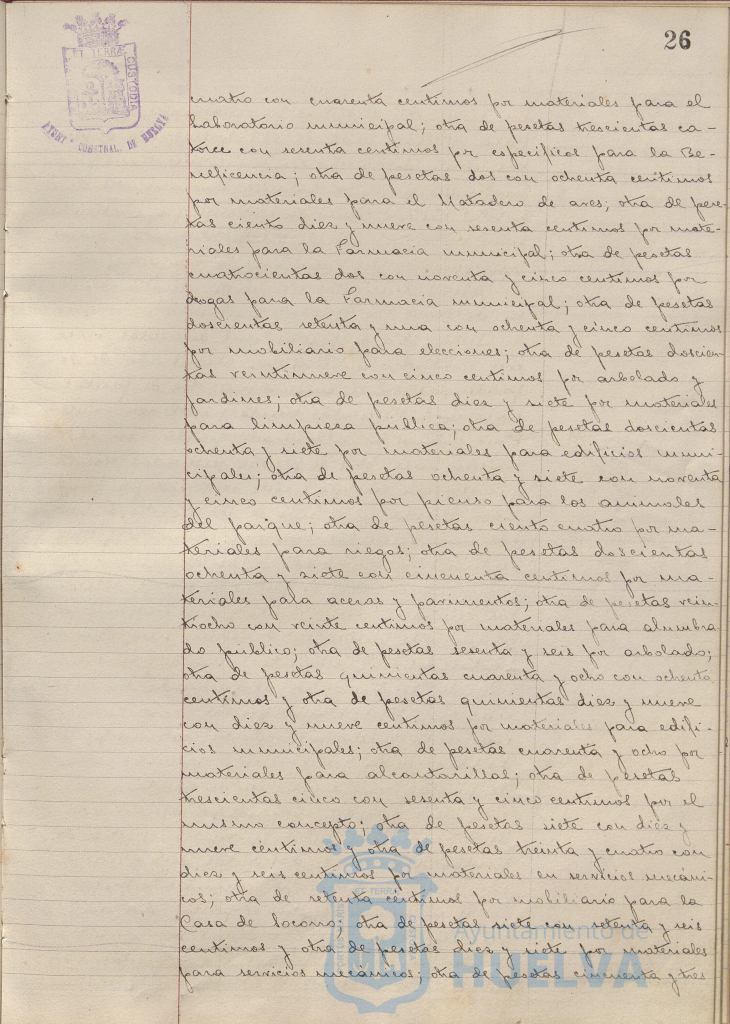 26
ET TERRÆ CUSTODIA
AYUNT. CONSTNAL. DE HUELVA
cuatro con cuarenta centimos por materiales para el
Laboratorio municipal; otra de pesetas trescientas ca-
torce con sesenta centimos por especificos para la Be-
neficencia; otra de pesetas dos con ochenta centimos
por materiales para el Matadero de aves; otra de pese-
tas ciento diez y nueve con sesenta centimos por mate-
riales para la Farmacia municipal; otra de pesetas
cuatrocientas dos con noventa y cinco centimos por
drogas para la Farmacia municipal; otra de pesetas
doscientas setenta y una con ochenta y cinco centimos
por mobiliario para elecciones; otra de pesetas doscien-
tas veintinueve con cinco centimos por arbolado y
jardines; otra de pesetas diez y siete por materiales
para limpieza publica; otra de pesetas doscientas
ochenta y siete por materiales para edificios muni-
cipales; otra de pesetas ochenta y siete con noventa
y cinco centimos por pienso para los animales
del parque; otra de pesetas ciento cuatro por ma-
teriales para riegos; otra de pesetas doscientas
ochenta y siete con cincuenta centimos por ma-
teriales para aceras y pavimentos; otra de pesetas vein-
tiocho con veinte centimos por materiales para alumbra-
do publico; otra de pesetas sesenta y seis por arbolado;
otra de pesetas quinientas cuarenta y ocho con ochenta
centimos y otra de pesetas quinientas diez y nueve
con diez y nueve centimos por materiales para edifi-
cios municipales; otra de pesetas cuarenta y ocho por
materiales para alcantarillas; otra de pesetas
trescientas cinco con sesenta y cinco centimos por el
mismo concepto; otra de pesetas siete con diez y
nueve centimos y otra de pesetas treinta y cuatro con
diez y seis centimos por materiales en servicios mecáni-
cos; otra de setenta centimos por mobiliario para la
Casa de Socorro; otra de pesetas siete con setenta y seis
centimos y otra de pesetas diez y siete por materiales
para servicios mecánicos; otra de pesetas cincuenta y tres
Ayuntamiento de
HUELVA